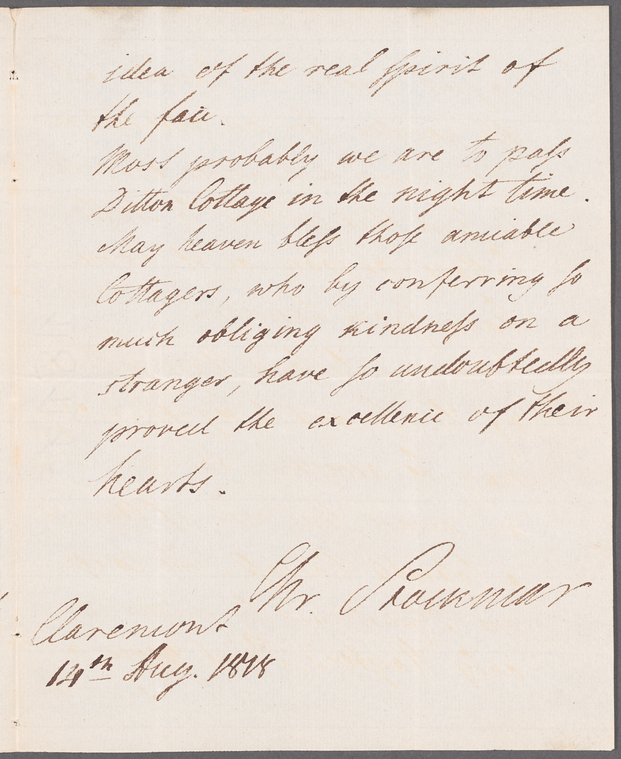 idea of the real spirit of
the fair.
Most probably we are to pass
Ditton Cottage in the night time.
May heaven bless those amiable
Cottagers, who by conferring so
much obliging kindness on a
stranger, have so undoubtedly
proved the excellence of their
hearts.
Chr. Stockmar
Claremont
14th Aug. 1818